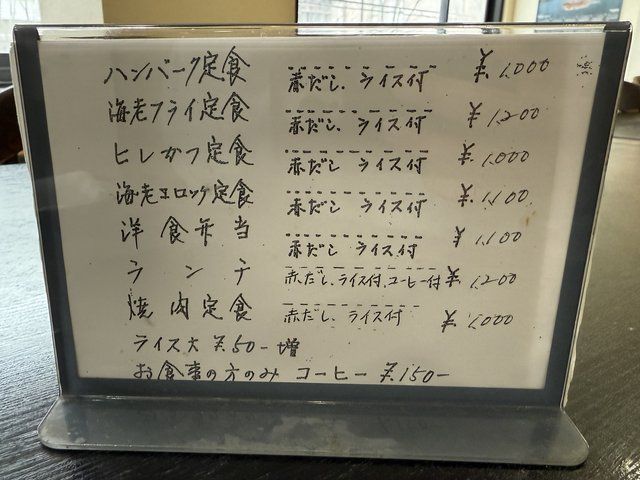 ハンバーク定食 赤だし、ライス付 ¥1,000
海老フライ定食 赤だし、ライス付 ¥1,200
ヒレカツ定食 赤だし ライス付 ¥1,000
海老コロッケ定食 赤だし ライス付 ¥1,100
洋食弁当 赤だし ライス付 ¥1,100
ランチ 赤だし、ライス付、コーヒー付 ¥1,200
焼肉定食 赤だし、ライス付 ¥1,000
ライス大 ¥50-増
お食事の方のみ コーヒー ¥150-